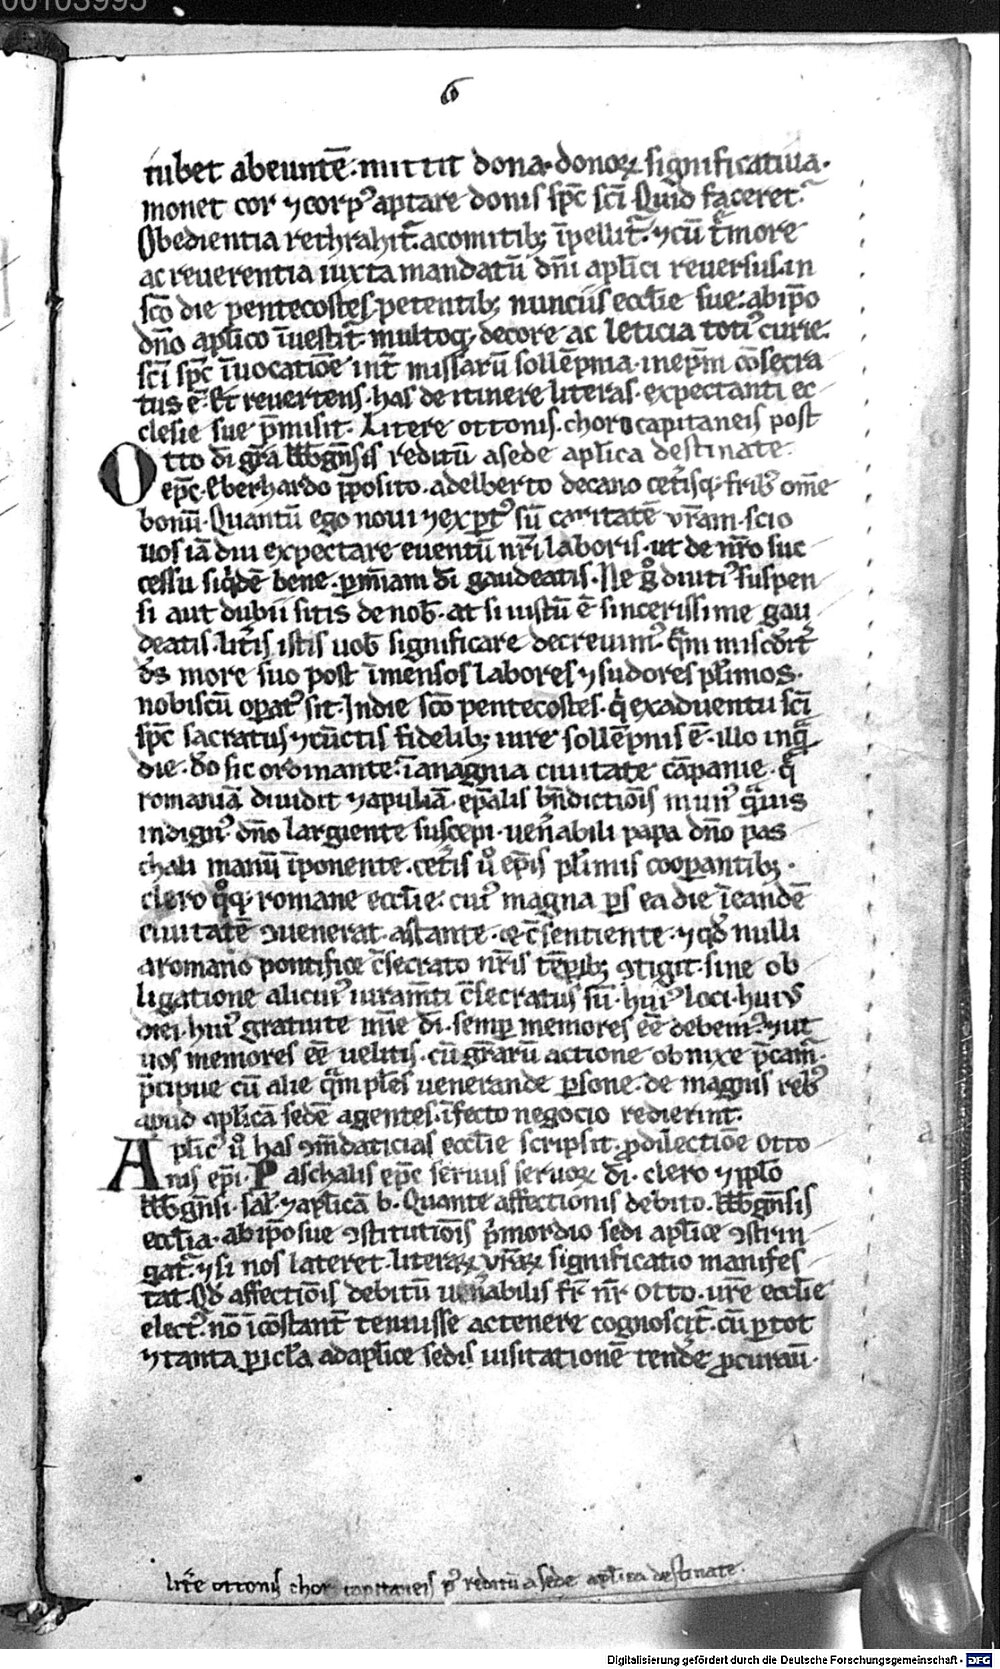 00103995
6
iubet abeuntē· mittit dona· donoꝝ significatiua·
monet cor ⁊ corpꝰ aptare donis sp̄c sc̄i· Quid faceret?
Obedientia rethrahit᷑· a comitibꝫ īpellit᷑· ⁊ cū t̄more
ac reuerentia iuxta mandatū dn̄i apl̄ici reuersus· in
sc̄o die pentecostes· petentibꝫ nunciis eccl̄ie sue· ab ip̄o
dn̄o apl̄ico īuestit᷑· multoqꝫ decore ac leticia totiꝰ curie·
sc̄i sp̄c īuocatiōe int̄ missarū sollēpnia· in ep̄m cōsecra
tus ē· Et reuertens· has de itinere literas· expectanti ec
clesie sue p̄misit· Litere ottonis· choro capitaneis post
Otto dī gr̄a bb̄gn̄sis reditū a sede apl̄ica destinate·
ep̄c· Eberhardo p̄posito· adelberto decano cet̄isqꝫ frībꝰ om̄e
bonū· Quantū ego noui ⁊ exꝑtꝰ sū caritatē vr̄am· scio
uos iā diu expectare euentū nr̄i laboris· ut de nr̄o suc
cessu siq̇dē bene· ꝑ mīam dī gaudeatis· Ne gͦ diutiꝰ suspen
si aut dubii sitis de nob̄· at si iustū ē sincerissime gau
deatis· lit̄is istis uob̄ significare decreuimꝰ· q̄m misc̄dit᷑
dꝰs more suo post īmensos labores ⁊ sudores pl̄imos·
nobiscū opatꝰ sit· In die sc̄o pentecostes· q̇ ex aduentu sc̄i
sp̄c sacratus ⁊ cūctis fidelibꝫ iure sollēpnis ē· illo inq̄
die· dō sic ordinante· ī anagnia ciuitate cāpanie· q̄
romaniā diuidit ⁊ apuliā· ep̄alis bn̄dictiōis munꝰ q̄uis
indignꝰ dn̄o largiente suscepi· ueñabili papa dn̄o pas
chali manū īponente· cet̄is ꟶ̊ ep̄is pl̄imis coopantibꝫ·
clero qͦqꝫ romane eccl̄ie· cuiꝰ magna ꝑs ea die ī eandē
ciuitatē ꝯuenerat· astante· ac c̄sentiente· ⁊ qd̄ nulli
a romano pontifice c̄secrato nr̄is tēꝑibꝫ ꝯtigit· sine ob
ligatione alicuiꝰ iuram̄ti c̄secratus sū· huiꝰ loci· huiꝰ
diei· huiꝰ gratuite mīe dī· semꝑ memores ēe debemꝰ· ⁊ ut
uos memores ēe uelitis· cū gr̄arū actione obnixe p̄cam᷑·
p̄cipue cū alie q̄m pl̄es uenerande ꝑsone· de magnis rebꝰ
apud apl̄icā sedē agentes· īfecto negocio redierint·
Apl̄icꝰ ꟶ̊ has ꝯm̄daticias eccl̄ie scripsit· ꝓ dilectiōe Otto
nis ep̄i· Paschalis ep̄c seruus seruoꝝ dī· clero ⁊ ꝑplo
bb̄gn̄si· sal̄· ⁊ apl̄icā b̄· Quante affectionis debito· bb̄gn̄sis
eccl̄ia· ab ip̄o sue ꝯstitutiōis p̄mordio sedi apl̄ice ꝯstrin
gat᷑· ⁊ si nos lateret· literaꝝ vr̄aꝝ significatio manifes
tat· Qd̄ affectiōis debitū ueñabilis fr̄ nr̄ Otto· ure eccl̄ie
electꝰ· nō īcōstant᷑ tenuisse ac tenere cognoscit᷑· cū ꝑ tot
⁊ tanta ꝑicl̄a ad apl̄ice sedis uisitationē tende᷑ ꝓcurau̅·
lit̄e ottonis chor capitaneis pꝰ reditū a sede apl̄ica destinate·
Digitalisierung gefördert durch die Deutsche Forschungsgemeinschaft - DFG